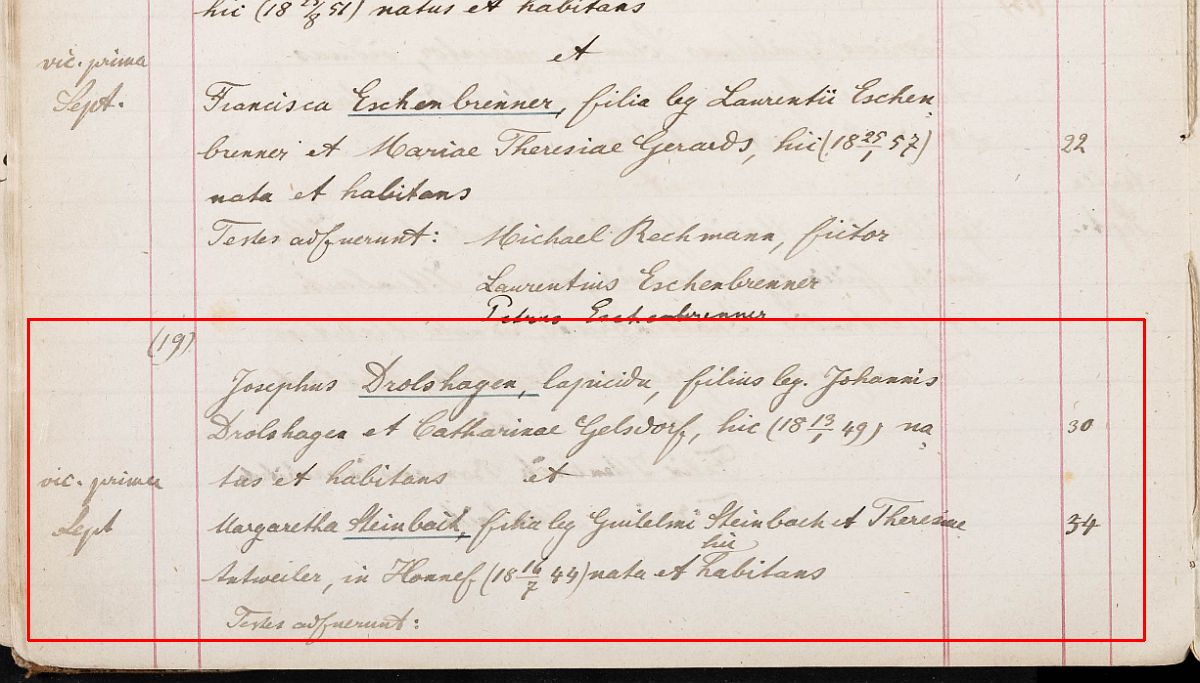 hic (18 25/8 51) natus et habitans
et
vic. prima
Sept.
Francisca Eschenbrenner, filia leg Laurentii Eschen
brenner et Mariae Theresiae Gerards, hic (18 25/1 57)
22
nata et habitans
Testes adfuerunt: Michael Rechmann, fictor
Laurentius Eschenbrenner
Petrus Eschenbrenner
(19)
Josephus Drolshagen, lapicida, filius leg. Johannis
Drolshagen et Catharinae Gelsdorf, hic (18 13/1 49) na-
30
vic. prima
tus et habitans et
Sept
Margaretha Steinbach, filia leg Guilelmi Steinbach et Theresiae
34
hic
Antweiler, in Honnef (18 16/7 44) nata et habitans
Testes adfuerunt: